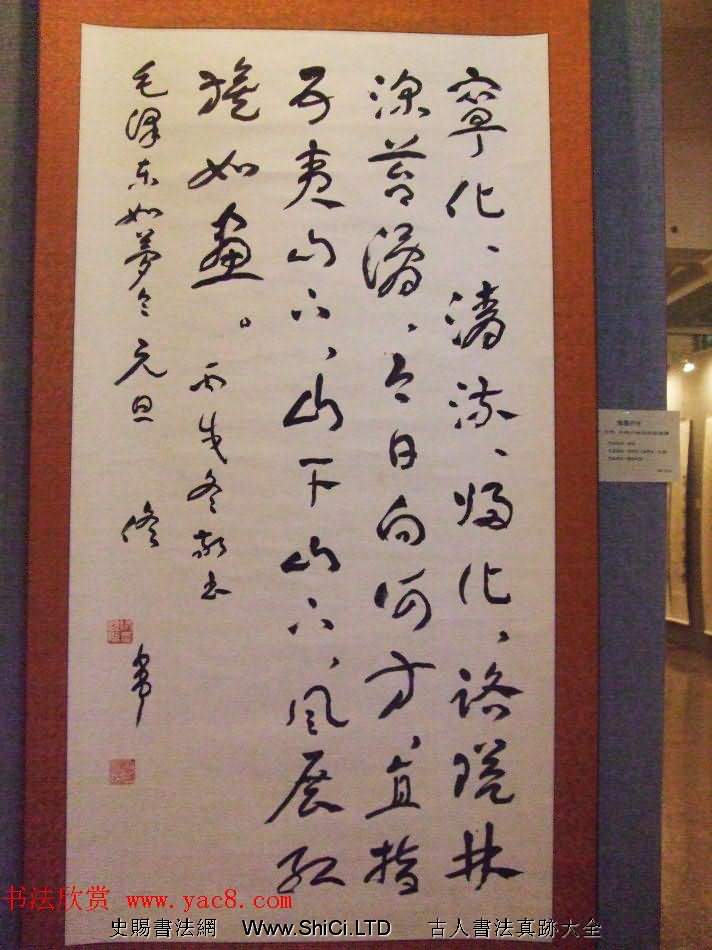 寧化、清流、归化、路隘林
深苔滑、今日向何方、直指
武夷山下、山下山下、風展红
旗如畫。丙戌冬敬书
毛泽东如夢令元旦
书法欣赏 www.yac8.com
史賜書法網 Www.ShiCi.LTD 古人書法真跡大全